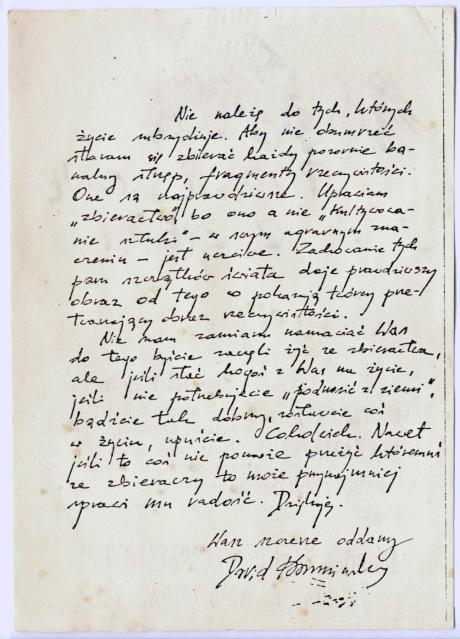 Nie należę do tych, których
życie subsydiuje. Aby nie obumrzeć
staram się zbierać każdy pozornie ba-
nalny strzęp, fragmenty rzeczywistości.
One są najprawdziwsze. Uprawiam
„zbieractwo", bo ono a nie „Kultywowa-
nie sztuki" – w swym agrarnym zna-
czeniu – jest uczciwe. Zachowanie tych
paru szczątków świata daje prawdziwszy
obraz od tego co pokazują twórcy prze-
twarzający obraz rzeczywistości.
Nie mam zamiaru namawiać Was
do tego byście zaczęli żyć ze zbieractwa,
ale jeśli stać kogoś z Was na życie,
jeśli nie potrzebujecie „podnosić z ziemi",
bądźcie tak dobrzy, zostawcie coś
w życiu, upuście. Cokolwiek. Nawet
jeśli to coś nie pomoże przeżyć któremuś
ze zbieraczy to może przynajmniej
sprawi mu radość. Dziękuję.
Wasz szczerze oddany